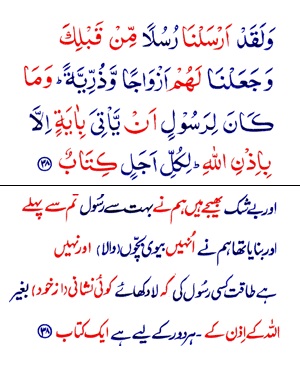 وَلَقَدْ اَرْسَلْنَا رُسُلًا مِّنْ قَبْلِكَ
وَجَعَلْنَا لَهُمْ اَزْوَاجًا وَّذُرِّيَّةً ؕ وَمَا
كَانَ لِرَسُوْلٍ اَنْ يَّاْتِىَ بِاٰيَةٍ اِلَّا
بِاِذْنِ اللّٰهِ ؕ لِكُلِّ اَجَلٍ كِتَابٌ ﴿۳۸﴾
اور بے شک بھیجے ہیں ہم نے بہت سے رسُول تم سے پہلے
اور بنایا تھا ہم نے اُنہیں بیوی بچّوں (والا) اور نہیں
ہے طاقت کسی رسُول کی کہ لا دکھائے کوئی نشانی (از خود) بغیر
اللہ کے اِذن کے ۔ ہر دور کے لیے ہے ایک کتاب ﴿۳۸﴾